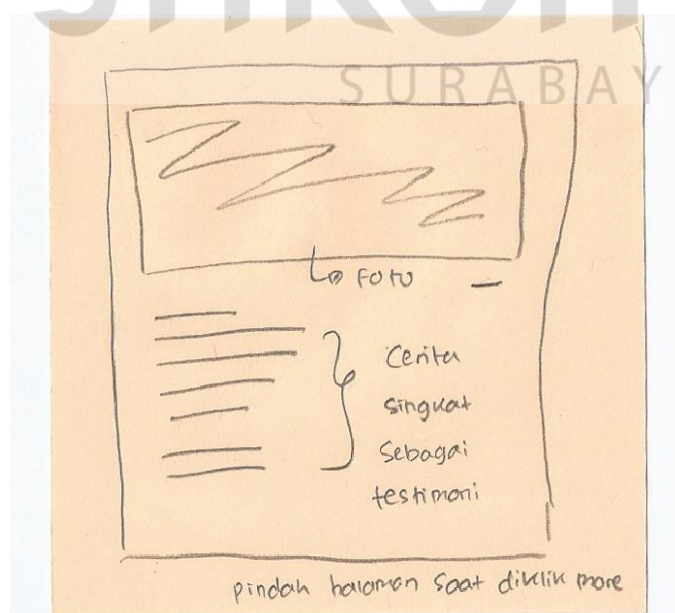 SURABAY
Foto
Cerita
singkat
Sebagai
testimoni
pindah halaman saat diklik more